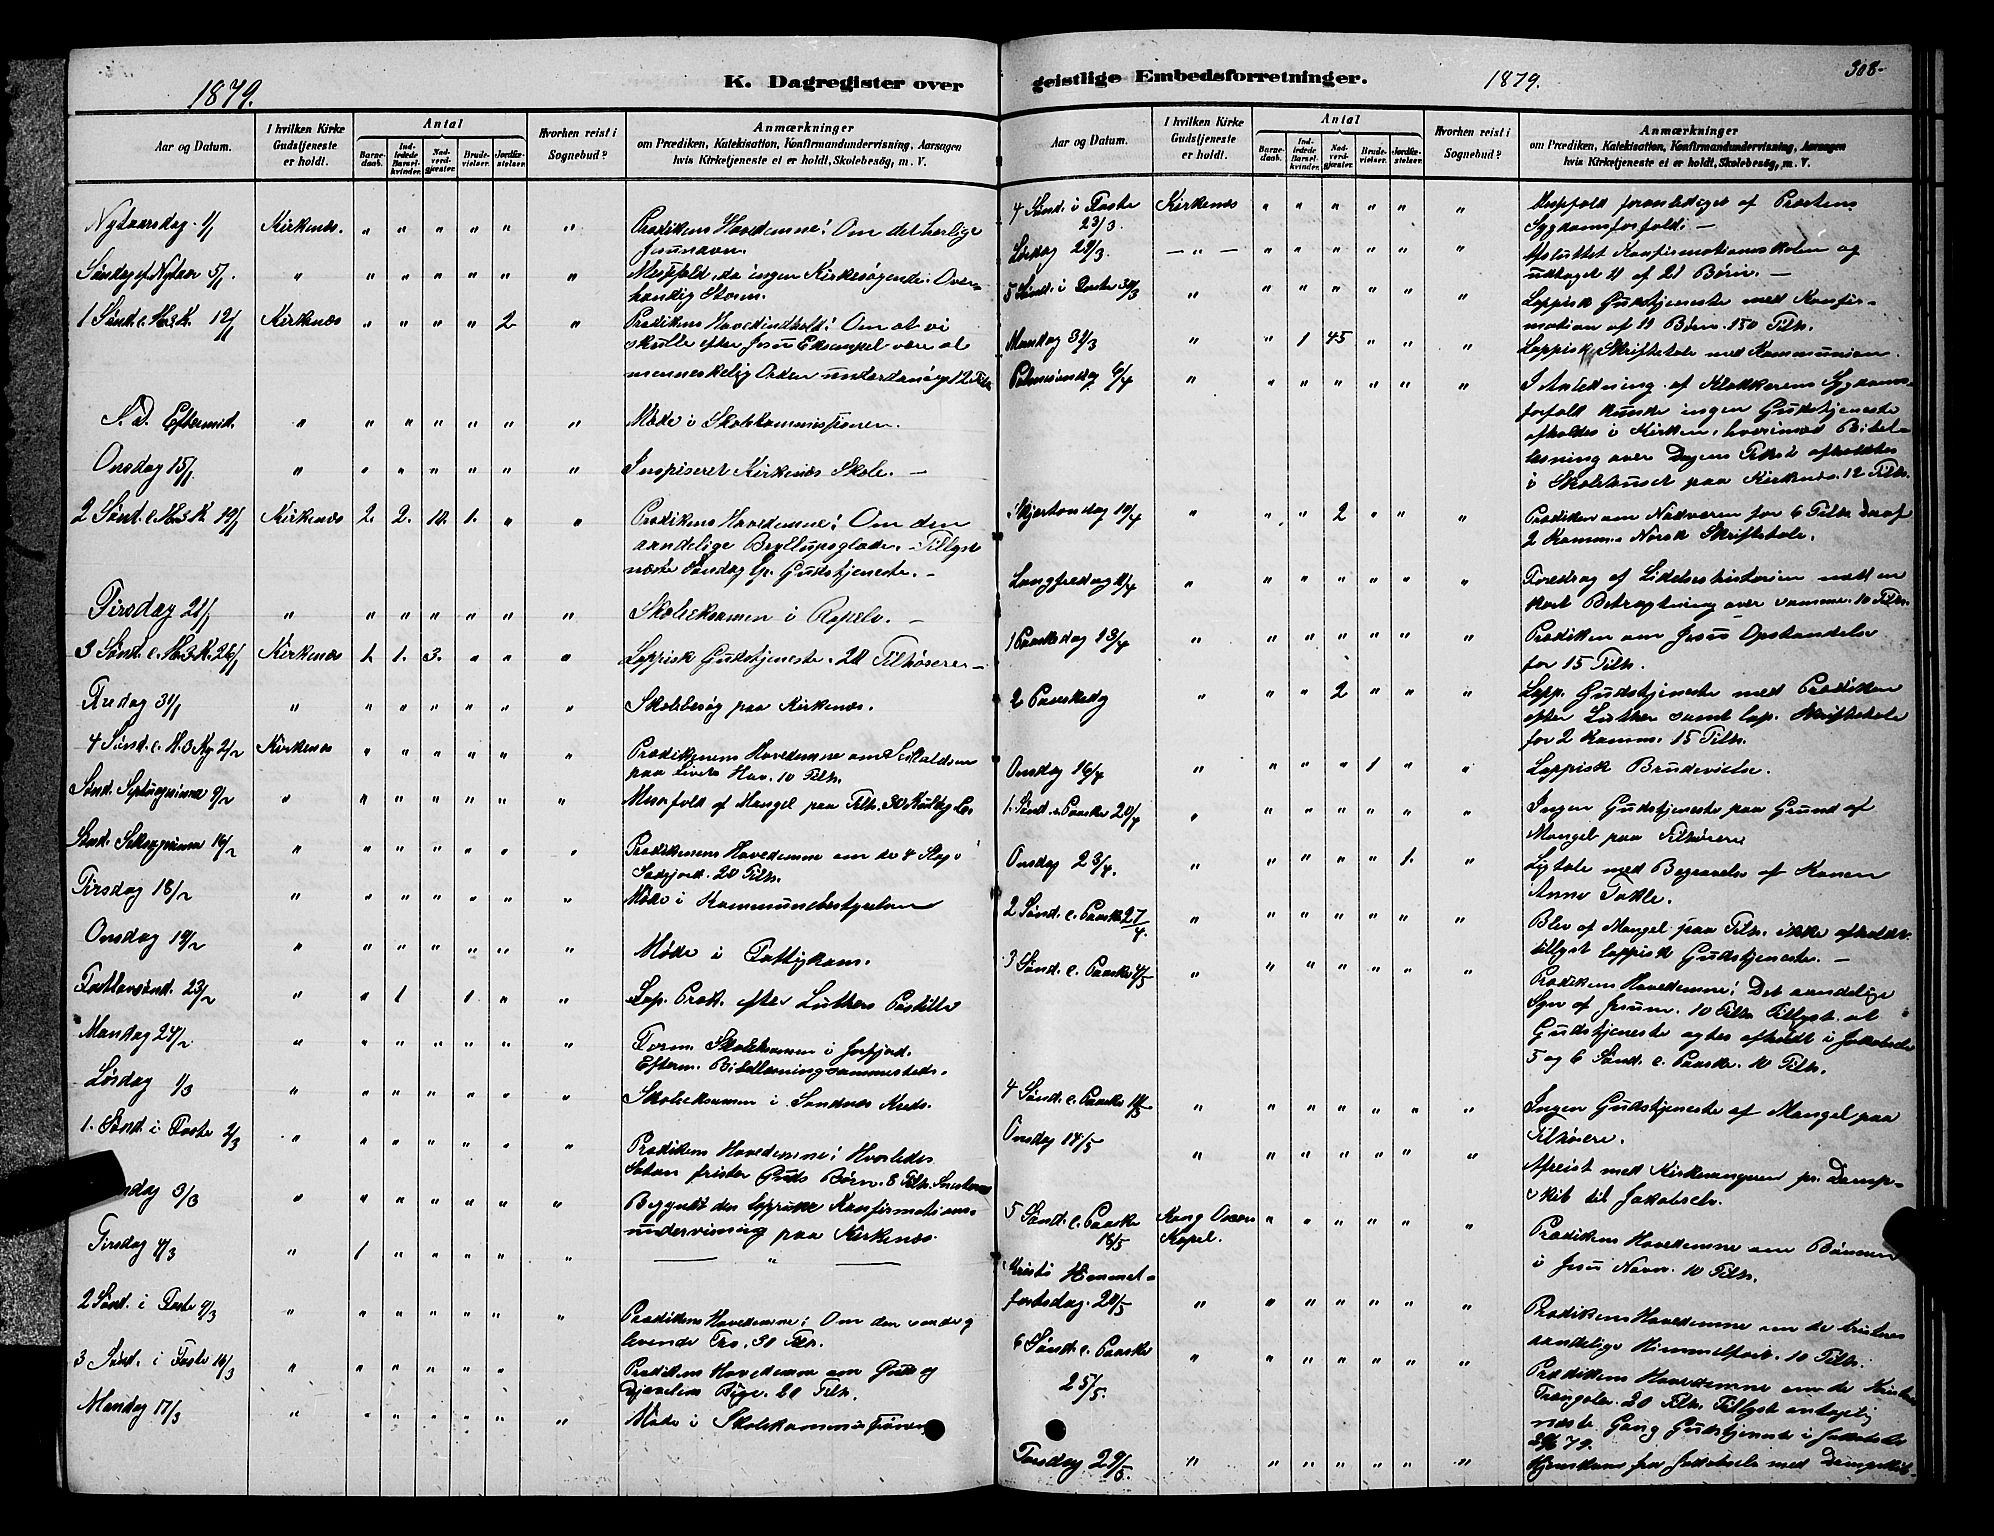 1879.
K. Dagregister over
Aar og Datum.
I hvilken Kirke Gudstjeneste er holdt.
Antal
Barnedaab.
Indledede Barselkvinder.
Nadverdgjæster.
Brudevielser.
Jordfæstelser.
Hvorhen reist i Sognebud?
Anmærkninger
om Prædiken, Katekisation, Konfirmandundervisning, Aarsagen
hvis Kirketjeneste ei er holdt, Skolebesög, m. V.
Nytaarsdag 1/1 Kirkenæs. " " " " " " Prædikens Hovedemne: Om det herlige
Jesunavn.
Søndag ef. Nytaar 5/1. " " " " " " " Messefald, da ingen Kirkesøgende. Over-
hændig Storm.
1 Sønd. e. H.3.K. 12/1 Kirkenæs " " " " 2 " Prædikens Hovedindhold: Om at vi
skulle efter Jesu Eksempel være al
menneskelig Orden underdanig 12 Tilh
S. D. Eftermid. " " " " " " " Møde i Skolekommissionen.
Onsdag 15/1 " " " " " " " Inspiseret Kirkenæs Skole. —
2 Sønd. e. H.3.K. 19/1 Kirkenæs 2. 2. 10. 1. " " Prædikens Hovedemne: Om den
aandelige Bryllupsglæde. Tillyst
næste Søndag lp. Gudstjeneste. —
Tirsdag 21/1 " " " " " " " Skoleeksamen i —
3 Sønd. e. H.3.K. 26/1 Kirkenæs 1. 1. 3. " " " Lappisk Gudstjeneste. 20 Tilhørere —
Fredag 31/1 " " " " " " " Skolebesøg paa Kirkenæs.
4 Sønd. e. H.3.K. 2/2 Kirkenæs " " " " " " Prædikenens Hovedemne om Seiladsen
paa Livets Hav. 10 Tilh.
Sønd. Septuagesima 9/2 " " " " " " " Messefald af Mangel paa Tilh.
Sønd. Seksagesima 16/2 " " " " " " " Prædikenens Hovedemne om de 4 Slags
Sædejord. 20 Tilh.
Tirsdag 18/2 " " " " " " " Møde i Kommunebestyrelsen
Onsdag 19/2 " " " " " " " Møde i Fattigkom.
Fastelavnsønd. 23/2 " " 1 " 1. " " Lap. Præd. efter Luthers Postille
Mandag 24/2 " " " " " " " Form. Skoleksamen i
Efterm. Bibellæsning sammesteds.
Lørdag 1/3 " " " " " " " Skoleeksamen i Sandnæs Kreds.
1. Sønd. i Faste 2/3 " " " " " " " Prædikens Hovedemne: Hvorledes
Satan frister Guds Børn. 8 Tilh.
ndag 3/3 " " " " " " " Begyndt den lappiske Konfirmations-
undervisning paa Kirkenæs.
Tirsdag 4/3 " 1 " " " " " — " —
2 Sønd. i Faste 9/3 " " " " " " " Prædikens Hovedemne: Om den sande og
levende Tro. 30 Tilh.
3 Sønd. i Faste 16/3 " " " " " " " Prædikens Hovedemne om Guds og
Djævelens Rige. 20 Tilh.
Mandag 17/3 " " " " " " " Møde i Skolekommissionen
geistlige Embedsforretninger.
1879.
308-
Aar og Datum.
I hvilken Kirke Gudstjeneste er holdt.
Antal
Barnedaab.
Indledede Barselkvinder.
Nadverdgjæster.
Brudevielser.
Jordfæstelser.
Hvorhen reist i Sognebud?
Anmærkninger
om Prædiken, Katekisation, Konfirmandundervisning, Aarsagen
hvis Kirketjeneste ei er holdt, Skolebesög, m. V.
4 Sønd. i Faste 23/3. Kirkenæs " " " " " " Messefald foranlediget af Præstens
Sygdomsforfald: —
Lørdag 29/3 — " — " " " " " " Afsluttet Konfirmationsskolen og
udtaget 11 af 21 Børn. —
5 Sønd. i Faste 30/3 " " " " " " " Lappisk Gudstjeneste med Konfir-
mation af 11 Børn. 150 Tilh.
Mandag 31/3 " " 1 45 " " " Lappisk Skriftetale med Kommunion.
Palmesøndag 6/4 " " " " " " " I Anledning af Klokkerens Sygdoms-
forfald kunde ingen Gudstjeneste
afholdes i Kirken, hvorimod Bibel-
læsning over Dagens Tekst afholdtes
i Skolehuset paa Kirkenæs. 12 Tilh.
Skjærtorsdag 10/4 " " " 2 " " " Prædiken om Nadveren for 6 Tilh. deraf
2 Komm. Norsk Skriftetale.
Langfredag 11/4 " " " " " " " Foredrag af Lidelseshistorien med en
kort Betragtning over samme. 10 Tilh.
1 Paaskedag 13/4 " " " " " " " Prædiken om Jesu Opstandelse
for 15 Tilh.
2 Paaskedg " " " 2 " " " Lapp. Gudstjeneste med Prædiken
efter Luther samt lap. Skriftetale
for 2 Komm. 15 Tilh.
Onsdag 16/4 " " " " 1 " " Lappisk Brudevielse.
1. Sønd. e. Paaske 20/4 " " " " " " " Ingen Gudstjeneste paa Grund af
Mangel paa Tilhørere
Onsdag 23/4. " " " " " 1. " Ligtale med Begravelse af Konen
Anne
2 Sønd. e. Paaske 27/4. " " " " " " " Blev af Mangel paa Tilh. ikke afholdt
tillyst lappisk Gudstjeneste. —
3 Sønd. e. Paaske 4/5 " " " " " " " Prædikens Hovedemne: Det aandelige
Syn af Jesum. 10 Tilh. Tillyst at
Gudstjeneste agtes afholdt i Jakobselv
5 og 6 Sønd. e. Paaske. 10 Tilh.
4 Sønd. e. Paaske 11/5 " " " " " " " Ingen Gudstjeneste af Mangel paa
Tilhørere.
Onsdag 14/5 " " " " " " " Afreist med Kirkesangeren pr. Damp-
skib til Jakobselv.
5 Sønd. e. Paaske 18/5 Kong Oscars Kapel. " " " " " " Prædikens Hovedemne om Bønnen
i Jesu Navn. 10 Tilh.
Kristi Himmel-
fartsdag. " " " " " " " Prædikens Hovedemne om de kristnes
aandelige Himmelfart. 10 Tilh.
6 Sønd. e. Paaske 25/5. " " " " " " " Prædikens Hovedemne om de Kristnes
Trængsler. 20 Tilh. Tillyst antagelig
næste Gang Gudstjeneste i Jakobselv
79.
Torsdag 29/5. " " " " " " " Hjemkom fra Jakobselv med Dampskib.